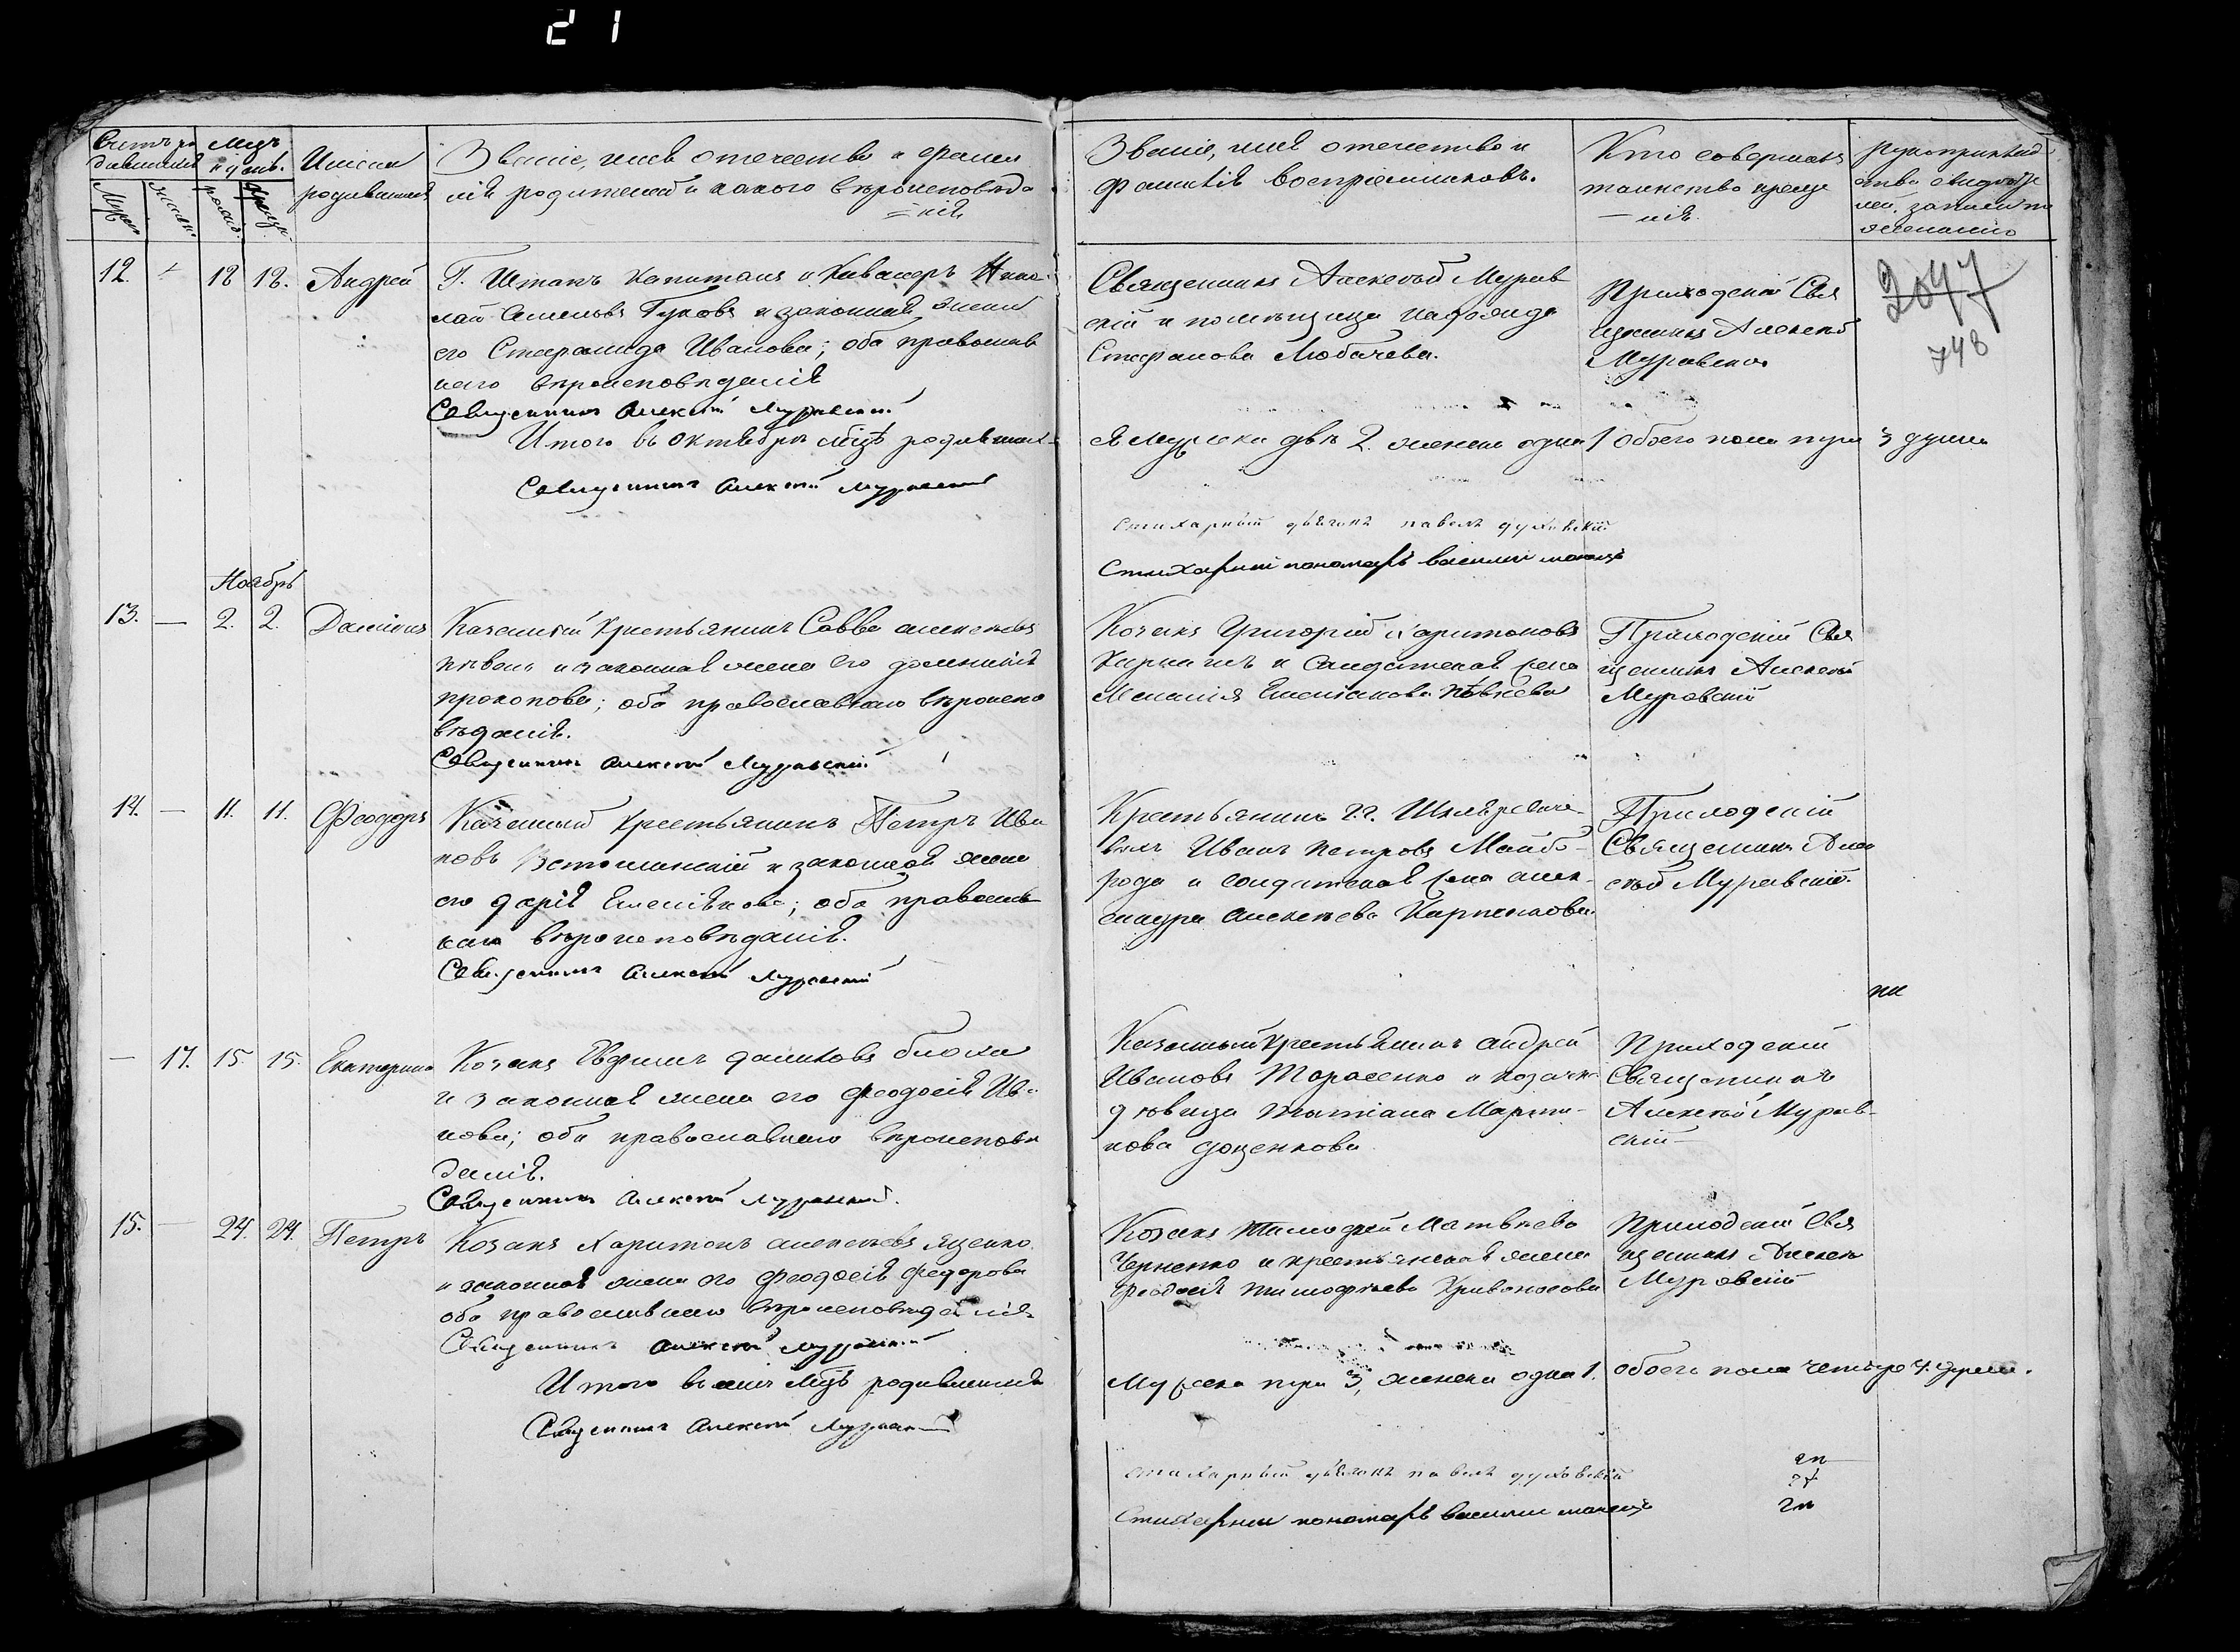 21
Счетъ ро
дившихся
Мѣц.
и день.
Муж.
Женск.
рожд.
крещ.
Имена
родившихся
Званіе, имя отечество и фами
лія родителей и какого вѣроисповѣда
нія
Званіе, имя отечество и
фамилія воспріемниковъ.
Кто совершалъ
таинство креще
нія.
рукоприклад
ство свидѣте
лей записи по
желанію
2047
748
12. 18 18. Андрей
Г. Штапъ Капитанъ и Кавалеръ Нико
лай Гуковъ и законная жена
его Иванова; оба православ
наго вѣроисповѣданія
Священникъ Алексѣй Муравскій
Священникъ Алексѣй Мурав
скій и помѣщица
Стефанова Любачева.
Приходскій Свя
щенникъ Алексѣй
Муравскій
Итого въ Октябрѣ мѣцѣ родивших
ся мужеска двѣ 2. женска одна 1 обоего пола три 3 души
Священникъ Алексѣй Муравскій
Стихарный дьячокъ павелъ духовскій
Стихарный пономарь василій
Ноябрь
13. — 2. 2. Даміанъ
Казенный Крестьянинъ Савва алексѣевъ
и законная жена его
прокопова; оба православнаго вѣроиспо
вѣданія.
Священникъ Алексѣй Муравскій
Козакъ Григорій Харитоновъ
и Солдатская
Меланія
Приходскій Свя
щенникъ Алексѣй
Муравскій
14. — 11. 11. Феодоръ
Казенный Крестьянинъ Петръ Ива
новъ и законная жена
его дарія Емеліянова; оба православ
наго вѣроисповѣданія.
Священникъ Алексѣй Муравскій
Крестьянинъ г.г.
Иванъ петровъ Майбо
рода и солдатская алек
сандра алексѣева
Приходскій
Священникъ Алек
сѣй Муравскій.
— 17. 15. 15. Екатерина
Козакъ Ефимъ даниловъ
и законная жена его феодосія Ива
нова; оба православнаго вѣроисповѣ
данія.
Священникъ Алексѣй Муравскій.
Казенный Крестьянинъ андрей
Ивановъ Тарасенко и козачка
дѣвица татіана Марти
нова доценкова
Приходскій
Священникъ
Алексѣй Мурав
скій
15. — 24. 24. Петръ
Козакъ Харитонъ алексѣевъ яценко
и законная жена его феодосія федорова
оба православнаго вѣроисповѣданія.
Священникъ Алексѣй Муравскій
Козакъ тимофей Матвѣевъ
Черненко и крестьянская жена
феодосія тимофѣева Кривоносова
Приходскій Свя
щенникъ Алексѣй
Муравскій
Итого въ мѣцѣ родившихся
Мужеска три 3, женска одна 1. обоего пола четыре 4. души.
Священникъ Алексѣй Муравскій
Стихарный дьячокъ павелъ духовскій
Стихарный пономарь василій